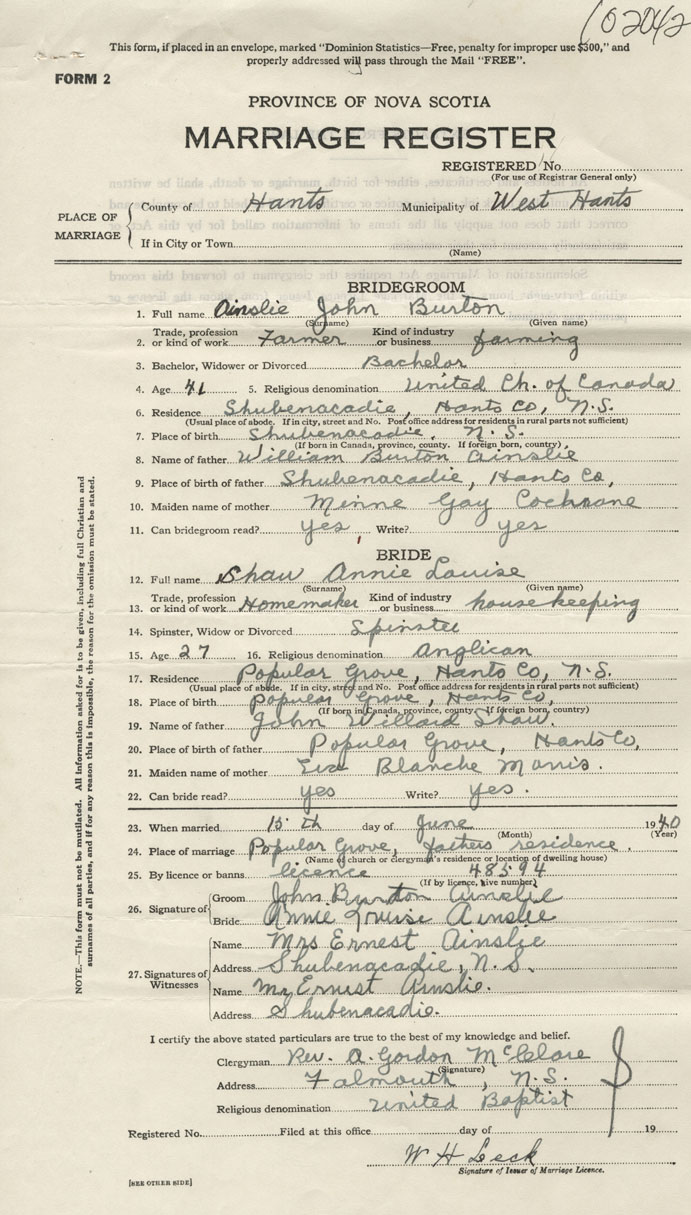 102042
This form, if placed in an envelope, marked "Dominion Statistics—Free, penalty for improper use $300," and
properly addressed will pass through the Mail "FREE".
FORM 2
PROVINCE OF NOVA SCOTIA
MARRIAGE REGISTER
REGISTERED No.
(For use of Registrar General only)
PLACE OF MARRIAGE
County of Hants Municipality of West Hants
If in City or Town
(Name)
BRIDEGROOM
1. Full name Ainslie John Burton
(Surname) (Given name)
2. Trade, profession or kind of work Farmer Kind of industry or business farming
3. Bachelor, Widower or Divorced Bachelor
4. Age 41 5. Religious denomination United Ch. of Canada
6. Residence Shubenacadie, Hants Co, N.S.
(Usual place of abode. If in city, street and No. Post office address for residents in rural parts not sufficient)
7. Place of birth Shubenacadie, N.S.
(If born in Canada, province, county. If foreign born, country)
8. Name of father William Burton Ainslie
9. Place of birth of father Shubenacadie, Hants Co,
10. Maiden name of mother Minne Gay Cochrane
11. Can bridegroom read? yes Write? yes
BRIDE
12. Full name Shaw Annie Louise
(Surname) (Given name)
13. Trade, profession or kind of work Homemaker Kind of industry or business housekeeping
14. Spinster, Widow or Divorced Spinster
15. Age 27 16. Religious denomination Anglican
17. Residence Popular Grove, Hants Co, N.S.
(Usual place of abode. If in city, street and No. Post office address for residents in rural parts not sufficient)
18. Place of birth Popular Grove, Hants Co,
(If born in Canada, province, county. If foreign born, country)
19. Name of father John Willard Shaw.
20. Place of birth of father Popular Grove, Hants Co,
21. Maiden name of mother Eva Blanche Morris.
22. Can bride read? yes Write? yes.
23. When married 15th day of June 1940
(Month) (Year)
24. Place of marriage Popular Grove, fathers residence.
(Name of church or clergyman's residence or location of dwelling house)
25. By licence or banns licence 48594
(If by licence, give number)
26. Signature of
Groom John Burton Ainslie
Bride Annie Louise Ainslie
27. Signatures of Witnesses
Name Mrs Ernest Ainslie
Address Shubenacadie, N.S.
Name Mr Ernest Ainslie.
Address Shubenacadie.
I certify the above stated particulars are true to the best of my knowledge and belief.
Clergyman Rev. A. Gordon McClare
(Signature)
Address Falmouth, N.S.
Religious denomination United Baptist
Registered No. Filed at this office day of 19
W H Leck
Signature of Issuer of Marriage Licence.
[SEE OTHER SIDE]
NOTE.—This form must not be mutilated. All information asked for is to be given, including full Christian and
surnames of all parties, and if for any reason this is impossible, the reason for the omission must be stated.